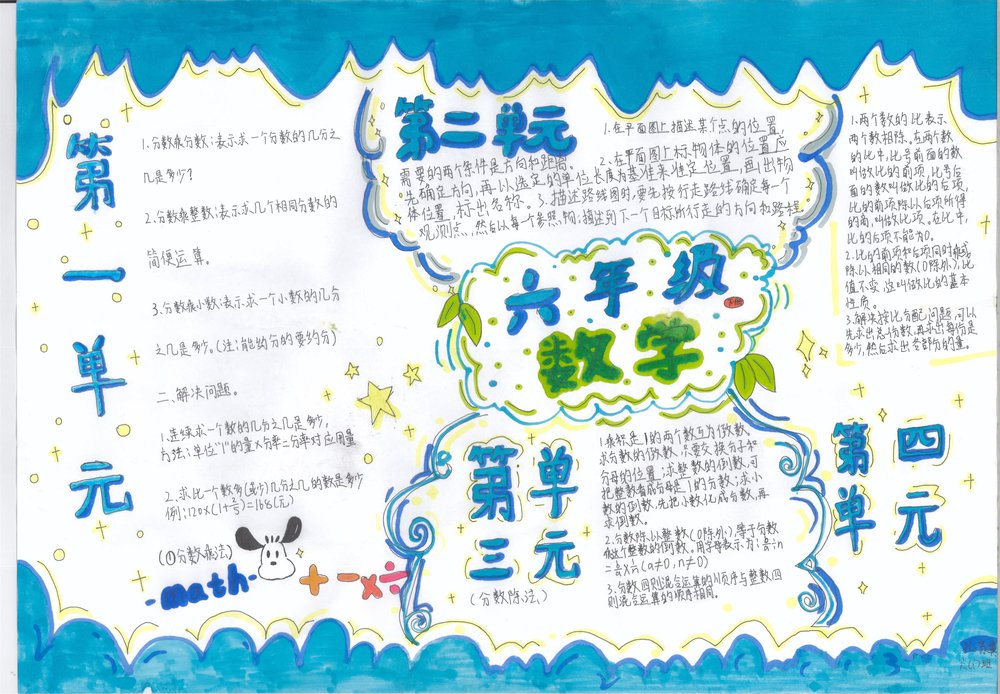 第一单元
1.分数乘分数:表示求一个分数的几分之
几是多少?
2.分数乘整数:表示求几个相同分数的
简便运算。
3.分数乘小数:表示求一个小数的几分
之几是多少。(注:能约分的要约分)
二、解决问题。
1.连续求一个数的几分之几是多少。
方法:单位"1"的量×分率=分率对应用量
2.求比一个数多(或少)几分之几的数是多少
(①分数乘法)
math
+-×÷
第二单元
1.在平面图上描述某个点的位置,
需要的两个条件是方向和距离。 2.在平面图上标物体的位置,应
先确定方向,再以选定的单位长度为基准来准定位置,画出物
体位置,标出名称。3.描述路线图时,要先按行走路线确定每一个
观测点,然后以每一个参照物,描述到下一个目标所行走的方向和路程
六年级
数学
第三单元
(分数除法)
1.乘积是1的两个数互为倒数。
求分数的倒数,只要交换分子和
分母的位置;求整数的倒数,可
把整数看成分母是1的分数;求小
数的倒数,先把小数化成分数,再
求倒数。
2.分数除以整数(0除外),等于分数
乘这个整数的倒数。用字母表示为:
(a≠0,n≠0)
3.分数四则混合运算的顺序与整数四
则混合运算的顺序相同。
第四单元
1.两个数的比表示
两个数相除。在两个数
的比中,比号前面的数
叫做比的前项,比号后
面的数叫做比的后项,
比的前项除以后项所得
的商,叫做比项。在比中,
比的后项不能为0。
2.比的前项和后项同时乘或
除以相同的数(0除外),比
值不变,这叫做比的基本
性质。
3.解决按比分配问题,可以
先求出总份数,再求出每份是
多少,然后求出各部分的量。